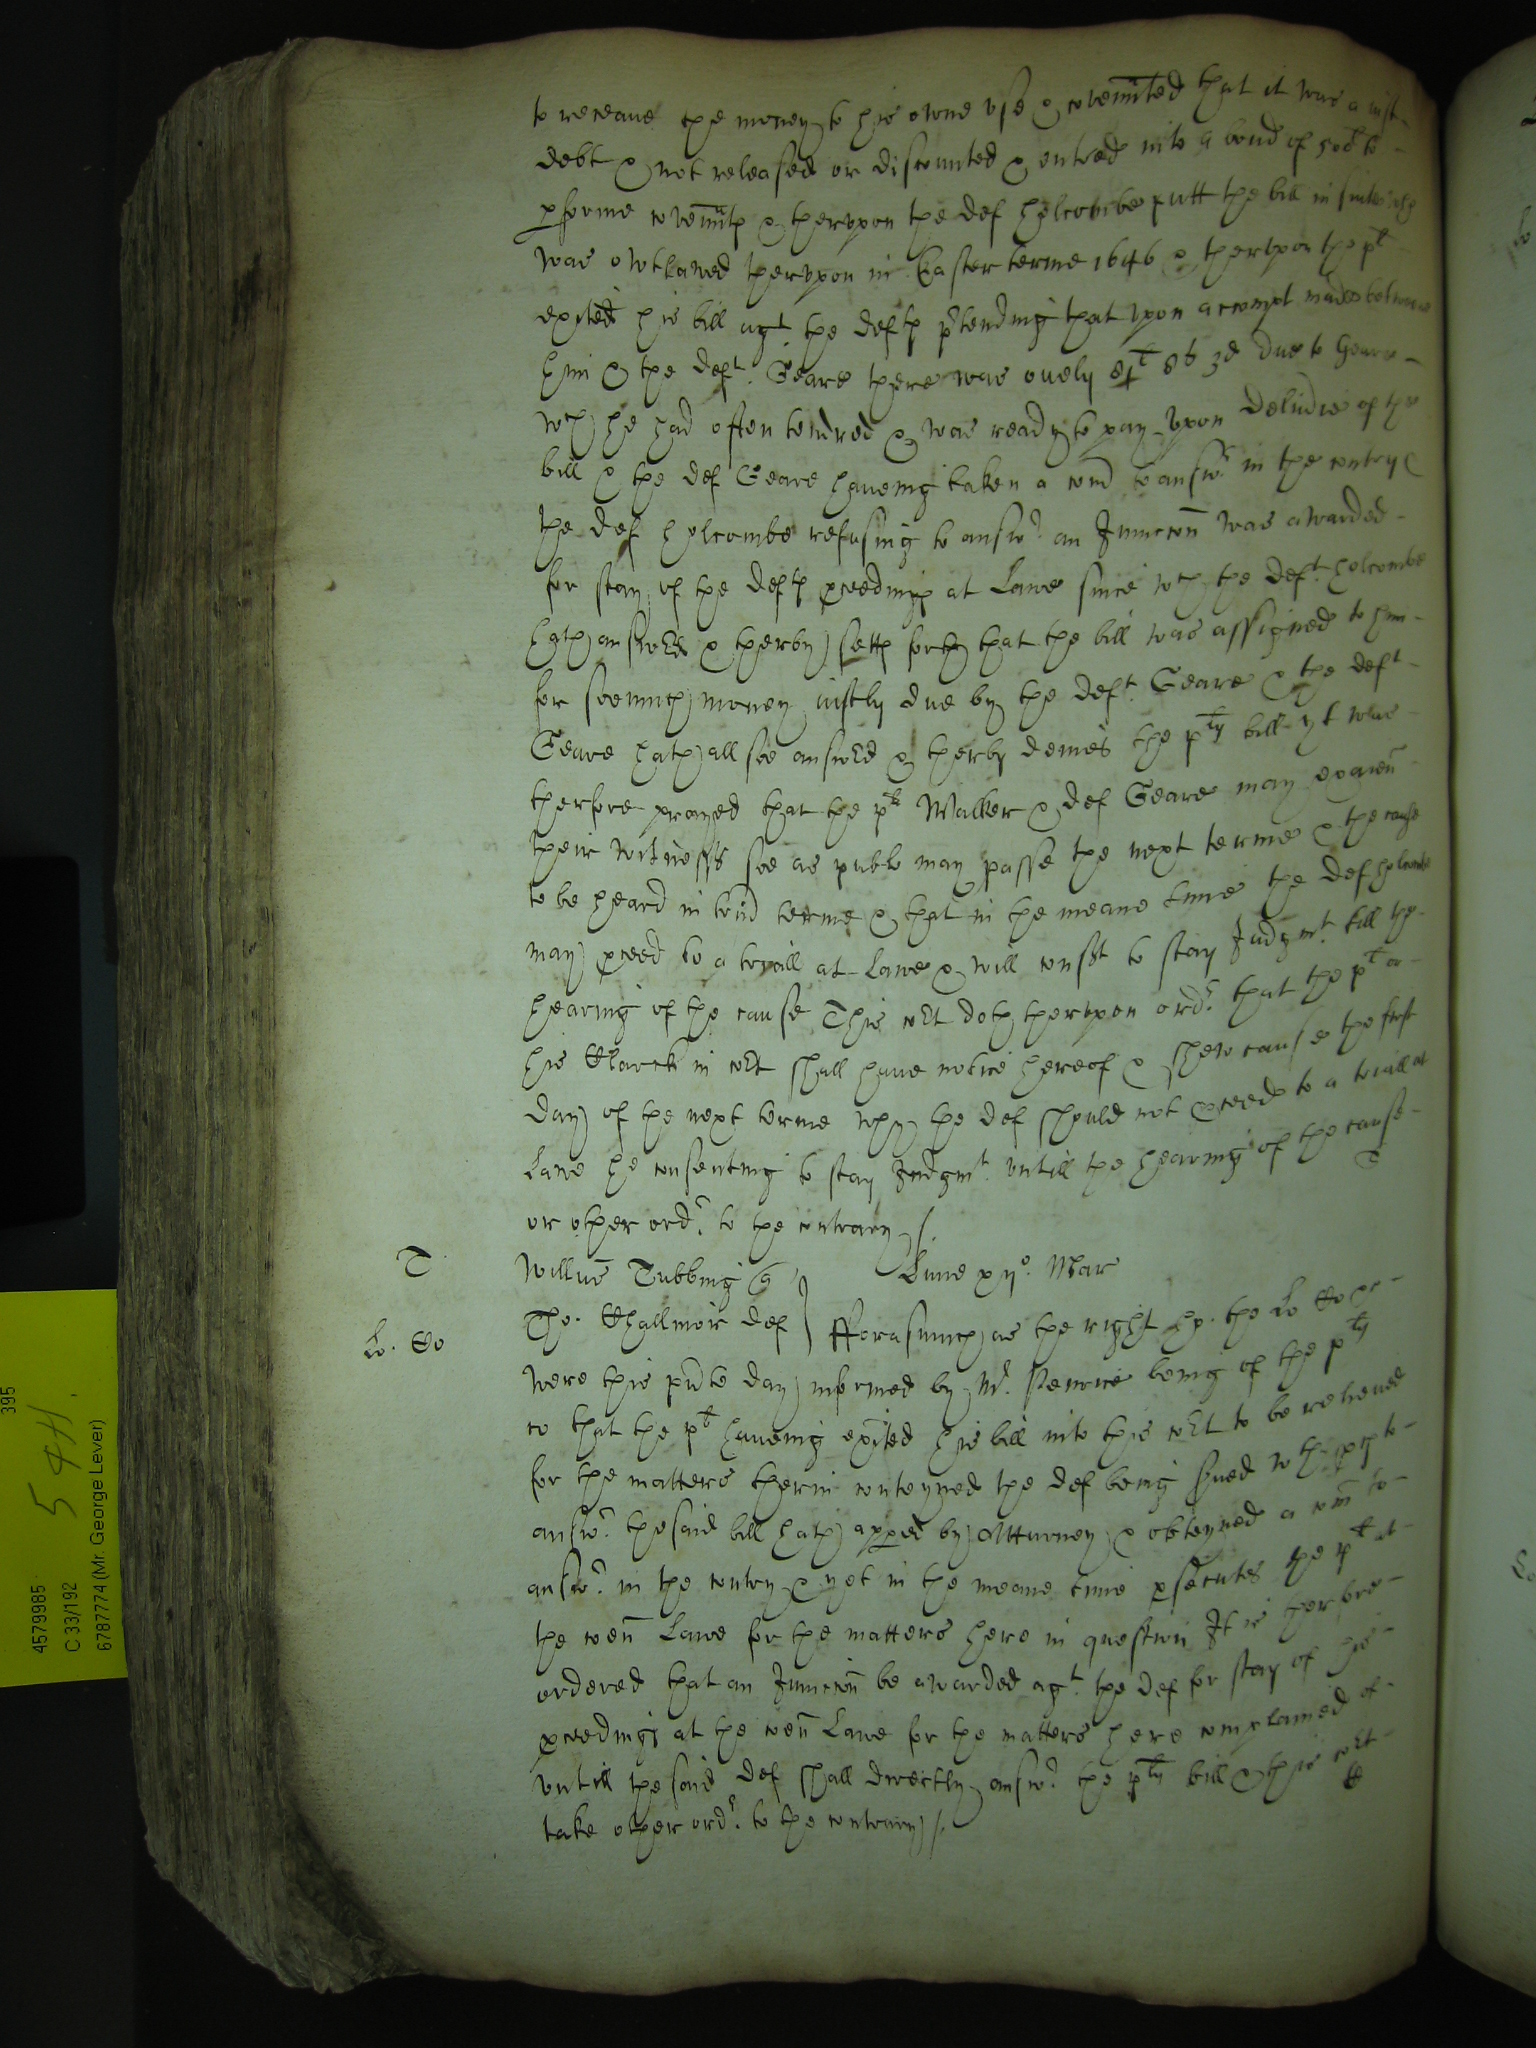 to receave the money to his owne vse & covennted that it was a iust
debt & not released or discounted & entred into a bond of 50l to
pforme covennts & thervpon the def Holcombe putt the bill in suite &
was owtlawed thervpon in Easter terme 1646 & thervpon the plt
exited his bill agt the defts ptending that vpon accompt made betweene
him & the deft Geare there was onely 8s 3d due to Geare
wch he had often tendred & was ready to pay vpon deliu'ie of the
bill & the def Geare haveing taken a com to answr in the contry &
the def Holcombe refusing to answr an Iniuncon was awarded
for stay of the defts pceedings at Lawe since wch the deft Holcombe
hath answed & therby setts forth that the bill was assigned to him
for soe much money iustly due by the deft Geare & the deft
Geare hath allsoe answed & therby denies the plts bill yt was
therfore prayed that the plt Walker & def Geare may examn
their witness's soe as publ' may passe the next terme & the cause
to be heard in the sd terme & that in the meane time the def Holcombe
may pceed to a tryall at Lawe & will consent to stay Iudgmt till the
hearing of the cause This cort doth thervpon ordr that the plt or
his Clarck in cort shall have notice hereof & shew cause the first
day of the next terme why the def should not pceede to a triall at
Lawe he consenting to stay Iudgmt vntill the hearing of the cause
or other ordr to the contrary /.
T
Willm Tubbing q
Lune xxijo Mar
Tho. Challmor def
Lo. Co
fforasmuch as the right ho. the Lo Co &c
were this pnte day informed by Mr being of the plts
co that the plt haveing exited his bill into this cort to be releived
for the matters therin conteyned the def being srved wth pces to
answr the said bill hath apped by Atturney & obteyned a com to
answr in the contry & yet in the meane time psecutes the plt at
the coen Lawe for the matters here in question It is therfore
ordered that an Iniuncon be awarded agt the def for stay of his
pceedings at the coen Lawe for the matters here complained of
vntill the said def shall directly answr the plts bill & this cort
take other ordr to the contrary /.
4579985
C 33/192
6787774 (Mr. George Lever)
395
544